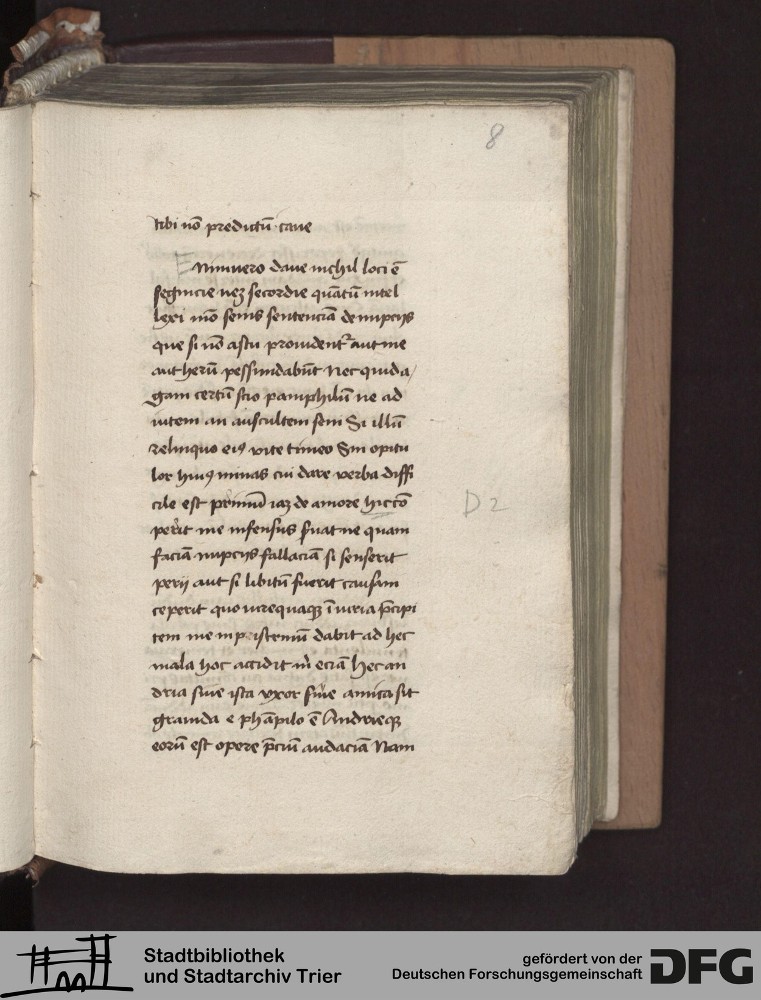 8
tibi nō predictū · cave
E Nimuero dave nichil loci ē
segnicie neqꝫ secordie quātū intel
lexi mō senis sentenciā de nupcijs
que si nō astu provident᷑ aut me
aut herū pessundabūt Nec quid a
gam certū scio pamphilū ne ad
iutem an auscultem seni Si illū
relinquo eiꝰ vite timeo Sin opitu
lor huiꝰ minas cui dare verba diffi
cile est primū iaꝫ de amore hic cō
perit me infensus servat ne quam
faciā nupcijs fallaciā si senserit
perij aut si libitū fuerit causam
ceperit quo iureque iniuria p̄cipi
tem me in pistrinū dabit ad hec
mala hoc accidit m̄ eciā Hec an
dria sive ista vxor sive amica sit
gravida e phāpilo ē Andrieqꝫ
eorū est opere p̄ciū audaciā Nam
D 2
Stadtbibliothek
und Stadtarchiv Trier
gefördert von der
Deutschen Forschungsgemeinschaft
DFG